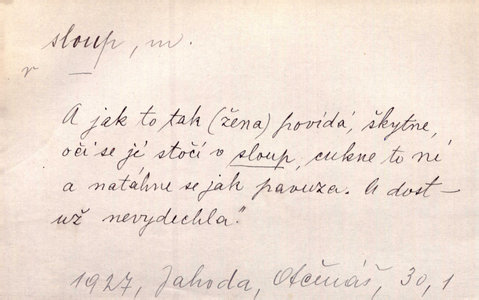 sloup, m.
v
A jak to tak (žena) povídá, škytne,
oči se jí stočí v sloup, cukne to ní
a natáhne se jak pavuza. A dost –
už nevydechla."
1927, Jahoda, Otčenáš, 30, 1